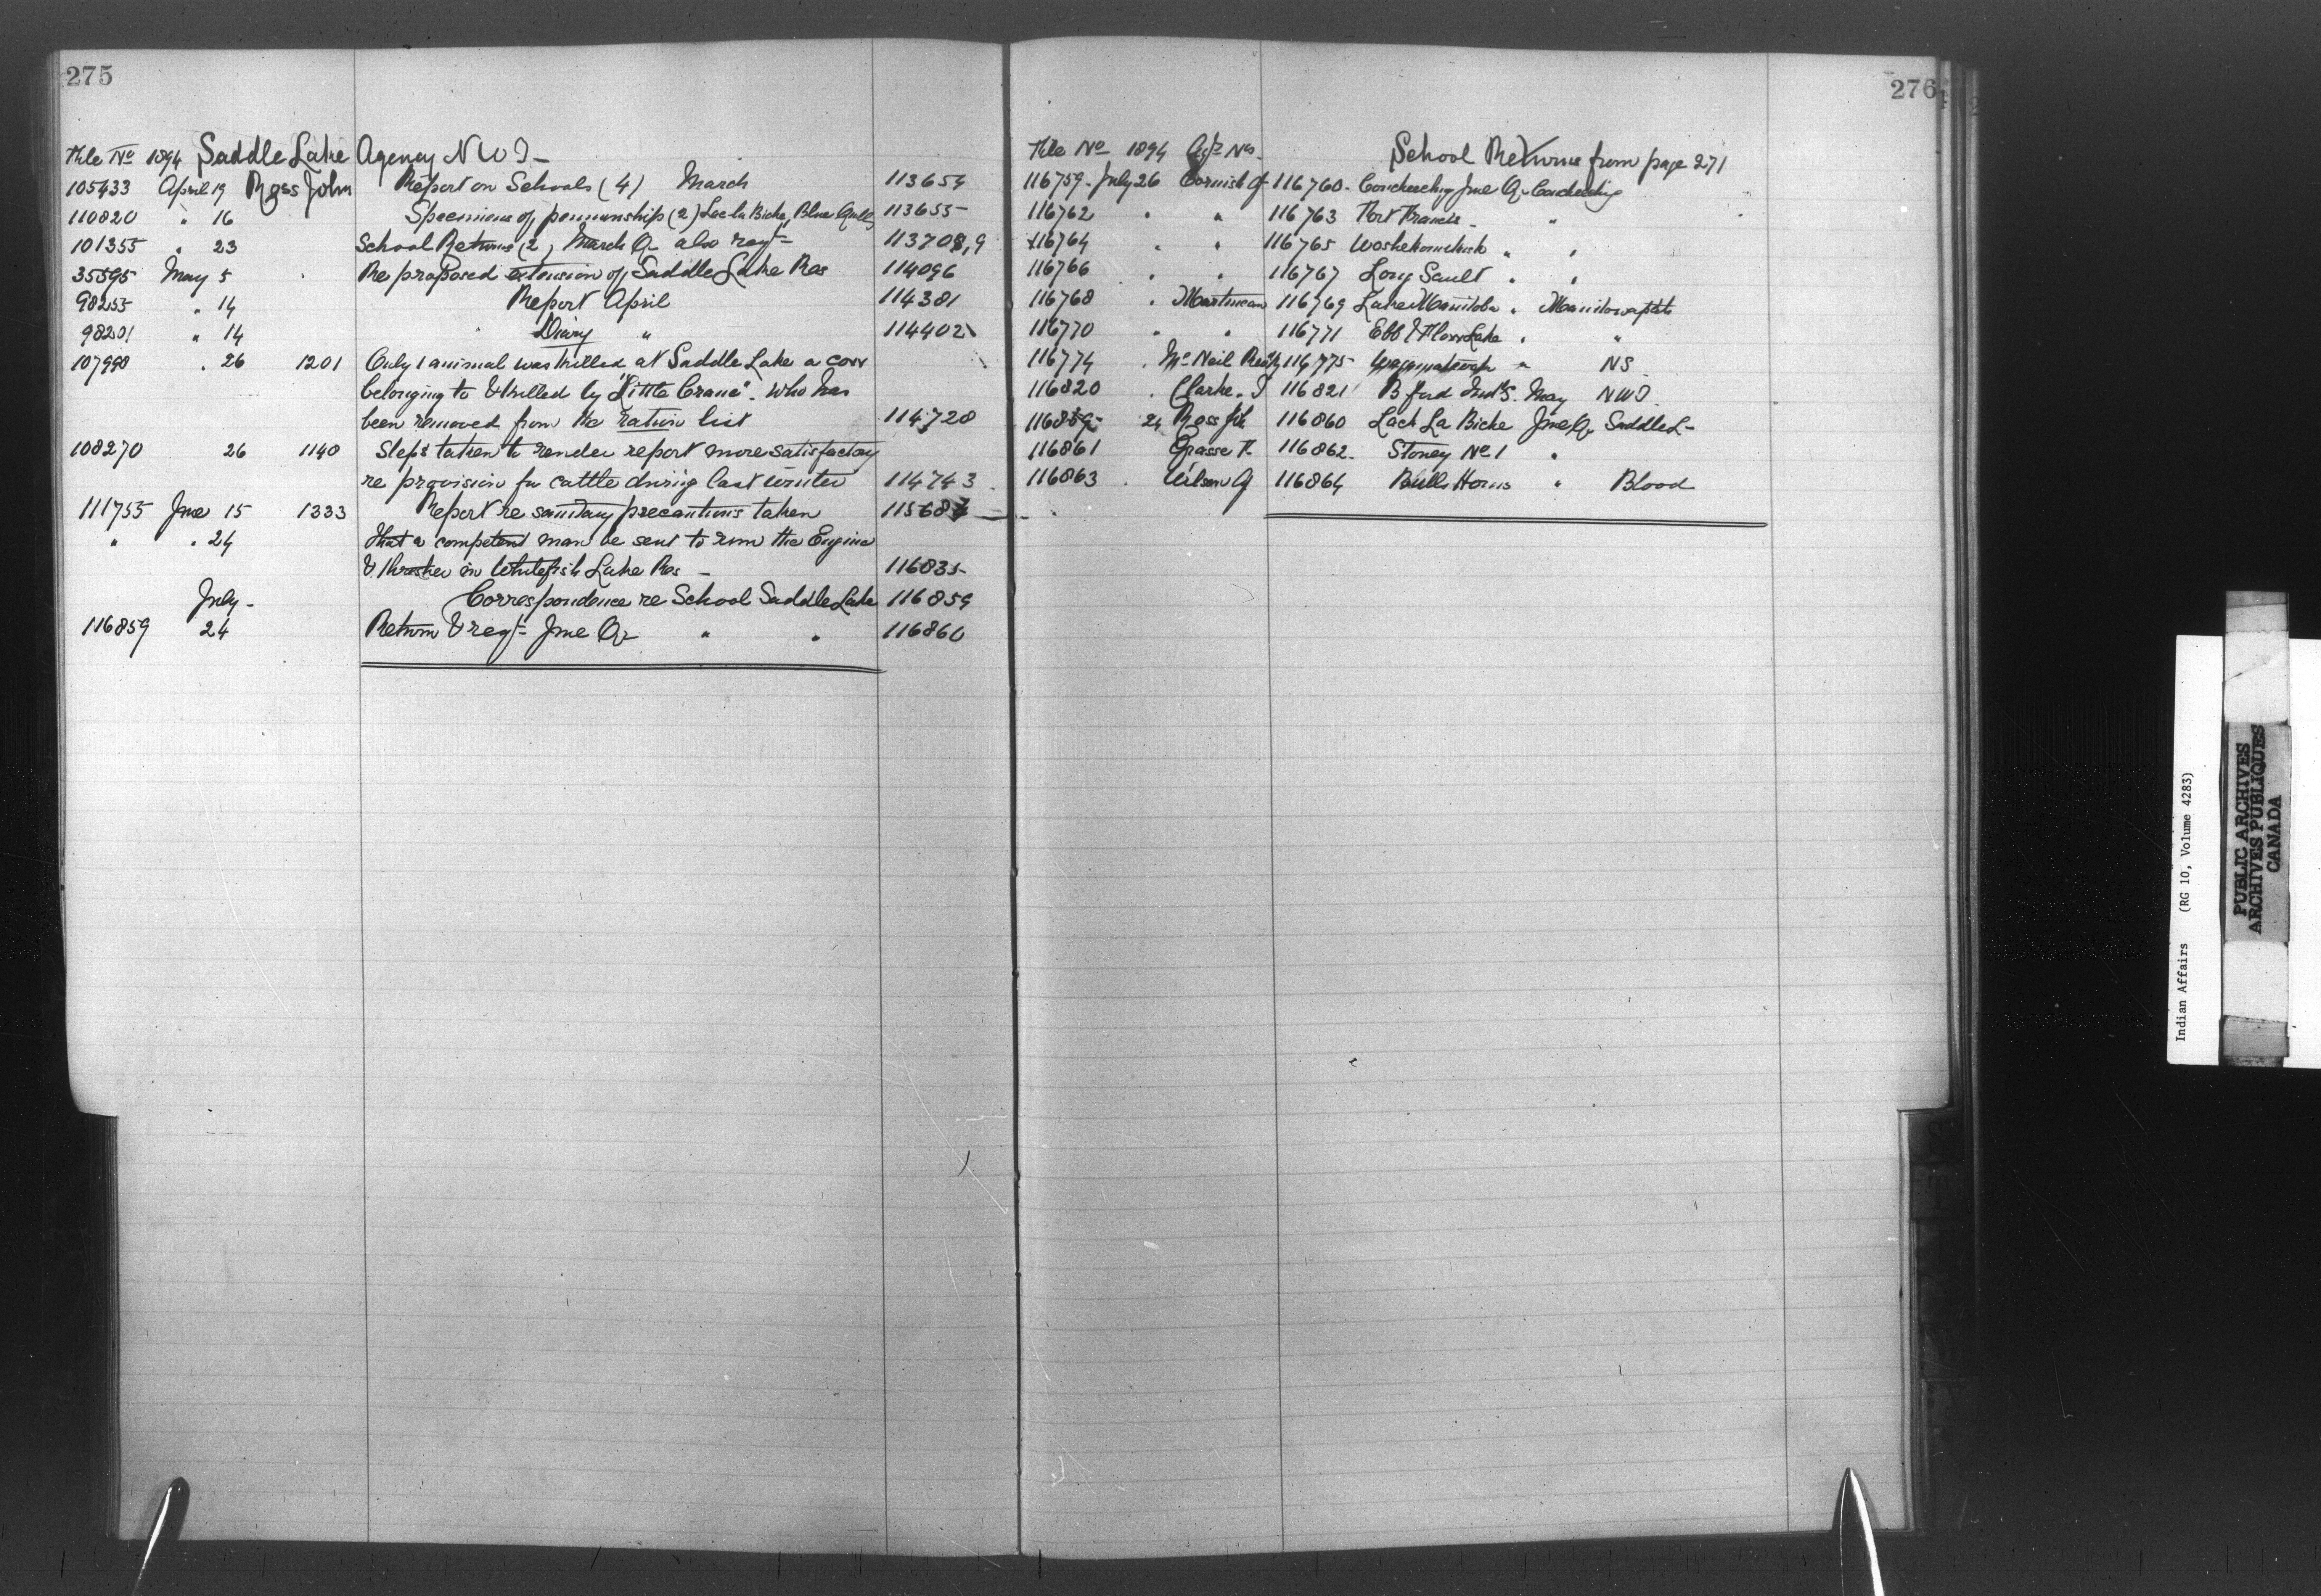 275
File No 1894 Saddle Lake Agency N W T -
105433 April 19 Ross John Report on Schools (4) March 113654
110820 " 16 Specimens of penmanship (2) Lac la Biche, Blue Quills 113655
101355 " 23 School Returns (2) March Qr also reqt - 113708,9
35595 May 5 Re proposed extension of Saddle Lake Res 114096
98255 " 14 Report April 114381
98201 " 14 " Diary " 114402
107990 " 26 1201 Only 1 animal was killed at Saddle Lake a cow
belonging to & killed by "Little Crane". Who has
been removed from the ration list 114728
108270 26 1140 Steps taken to render report more satisfactory
re provision for cattle during last winter 114743
111755 June 15 1333 Report re sanitary precautions taken
" " 24 That a competent man be sent to run the Engine
& thrasher in Whitefish Lake Res - 116835
July - Correspondence re School Saddle Lake 116859
116859 24 Return & reqt - June Qr " " 116860
276
File No 1894 Agt No. School Returns from page 271
116759 - July 26 Cornish 116760 - Coucheching June Qr Coucheching
116762 " " 116763 Fort Francis - "
116764 " " 116765 " "
116766 " " 116767 Long Sault " "
116768 " Martineau 116769 Lake Manitoba " Manitowapah
116770 " " 116771 Ebb & Flow Lake " "
116774 " McNeil 116775 " NS
116820 " Clarke 116821 B ford Ind S. May NWT
116859 - 24 Ross Jn 116860 Lach La Biche June Qr Saddle L -
116861 Grasse 116862 - Stoney No 1 "
116863 " Wilson 116864 Bulls Horns " Blood
Indian Affairs (RG 10, Volume 4283)
PUBLIC ARCHIVES
ARCHIVES PUBLIQUES
CANADA